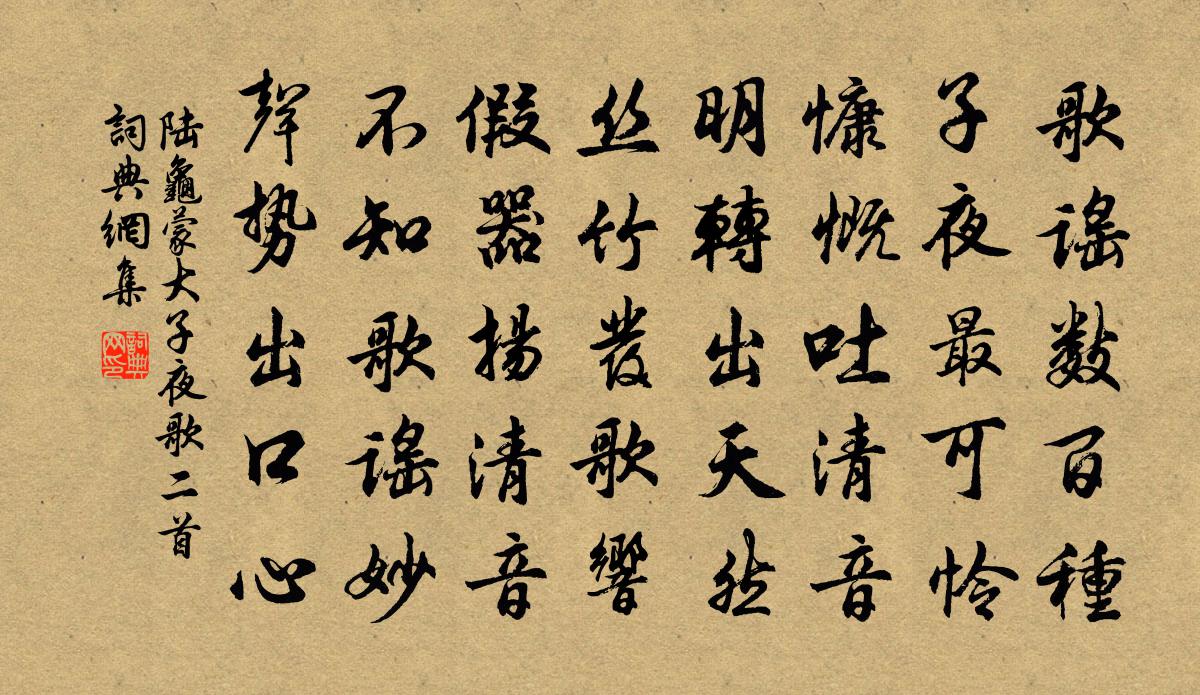 歌謠數百種
子夜最可怜
慷慨吐清音
明轉出天然
丝竹發歌響
假器揚清音
不知歌謠妙
聲势出口心
陆龜蒙大子夜歌二首
詞典網集
詞典
网印